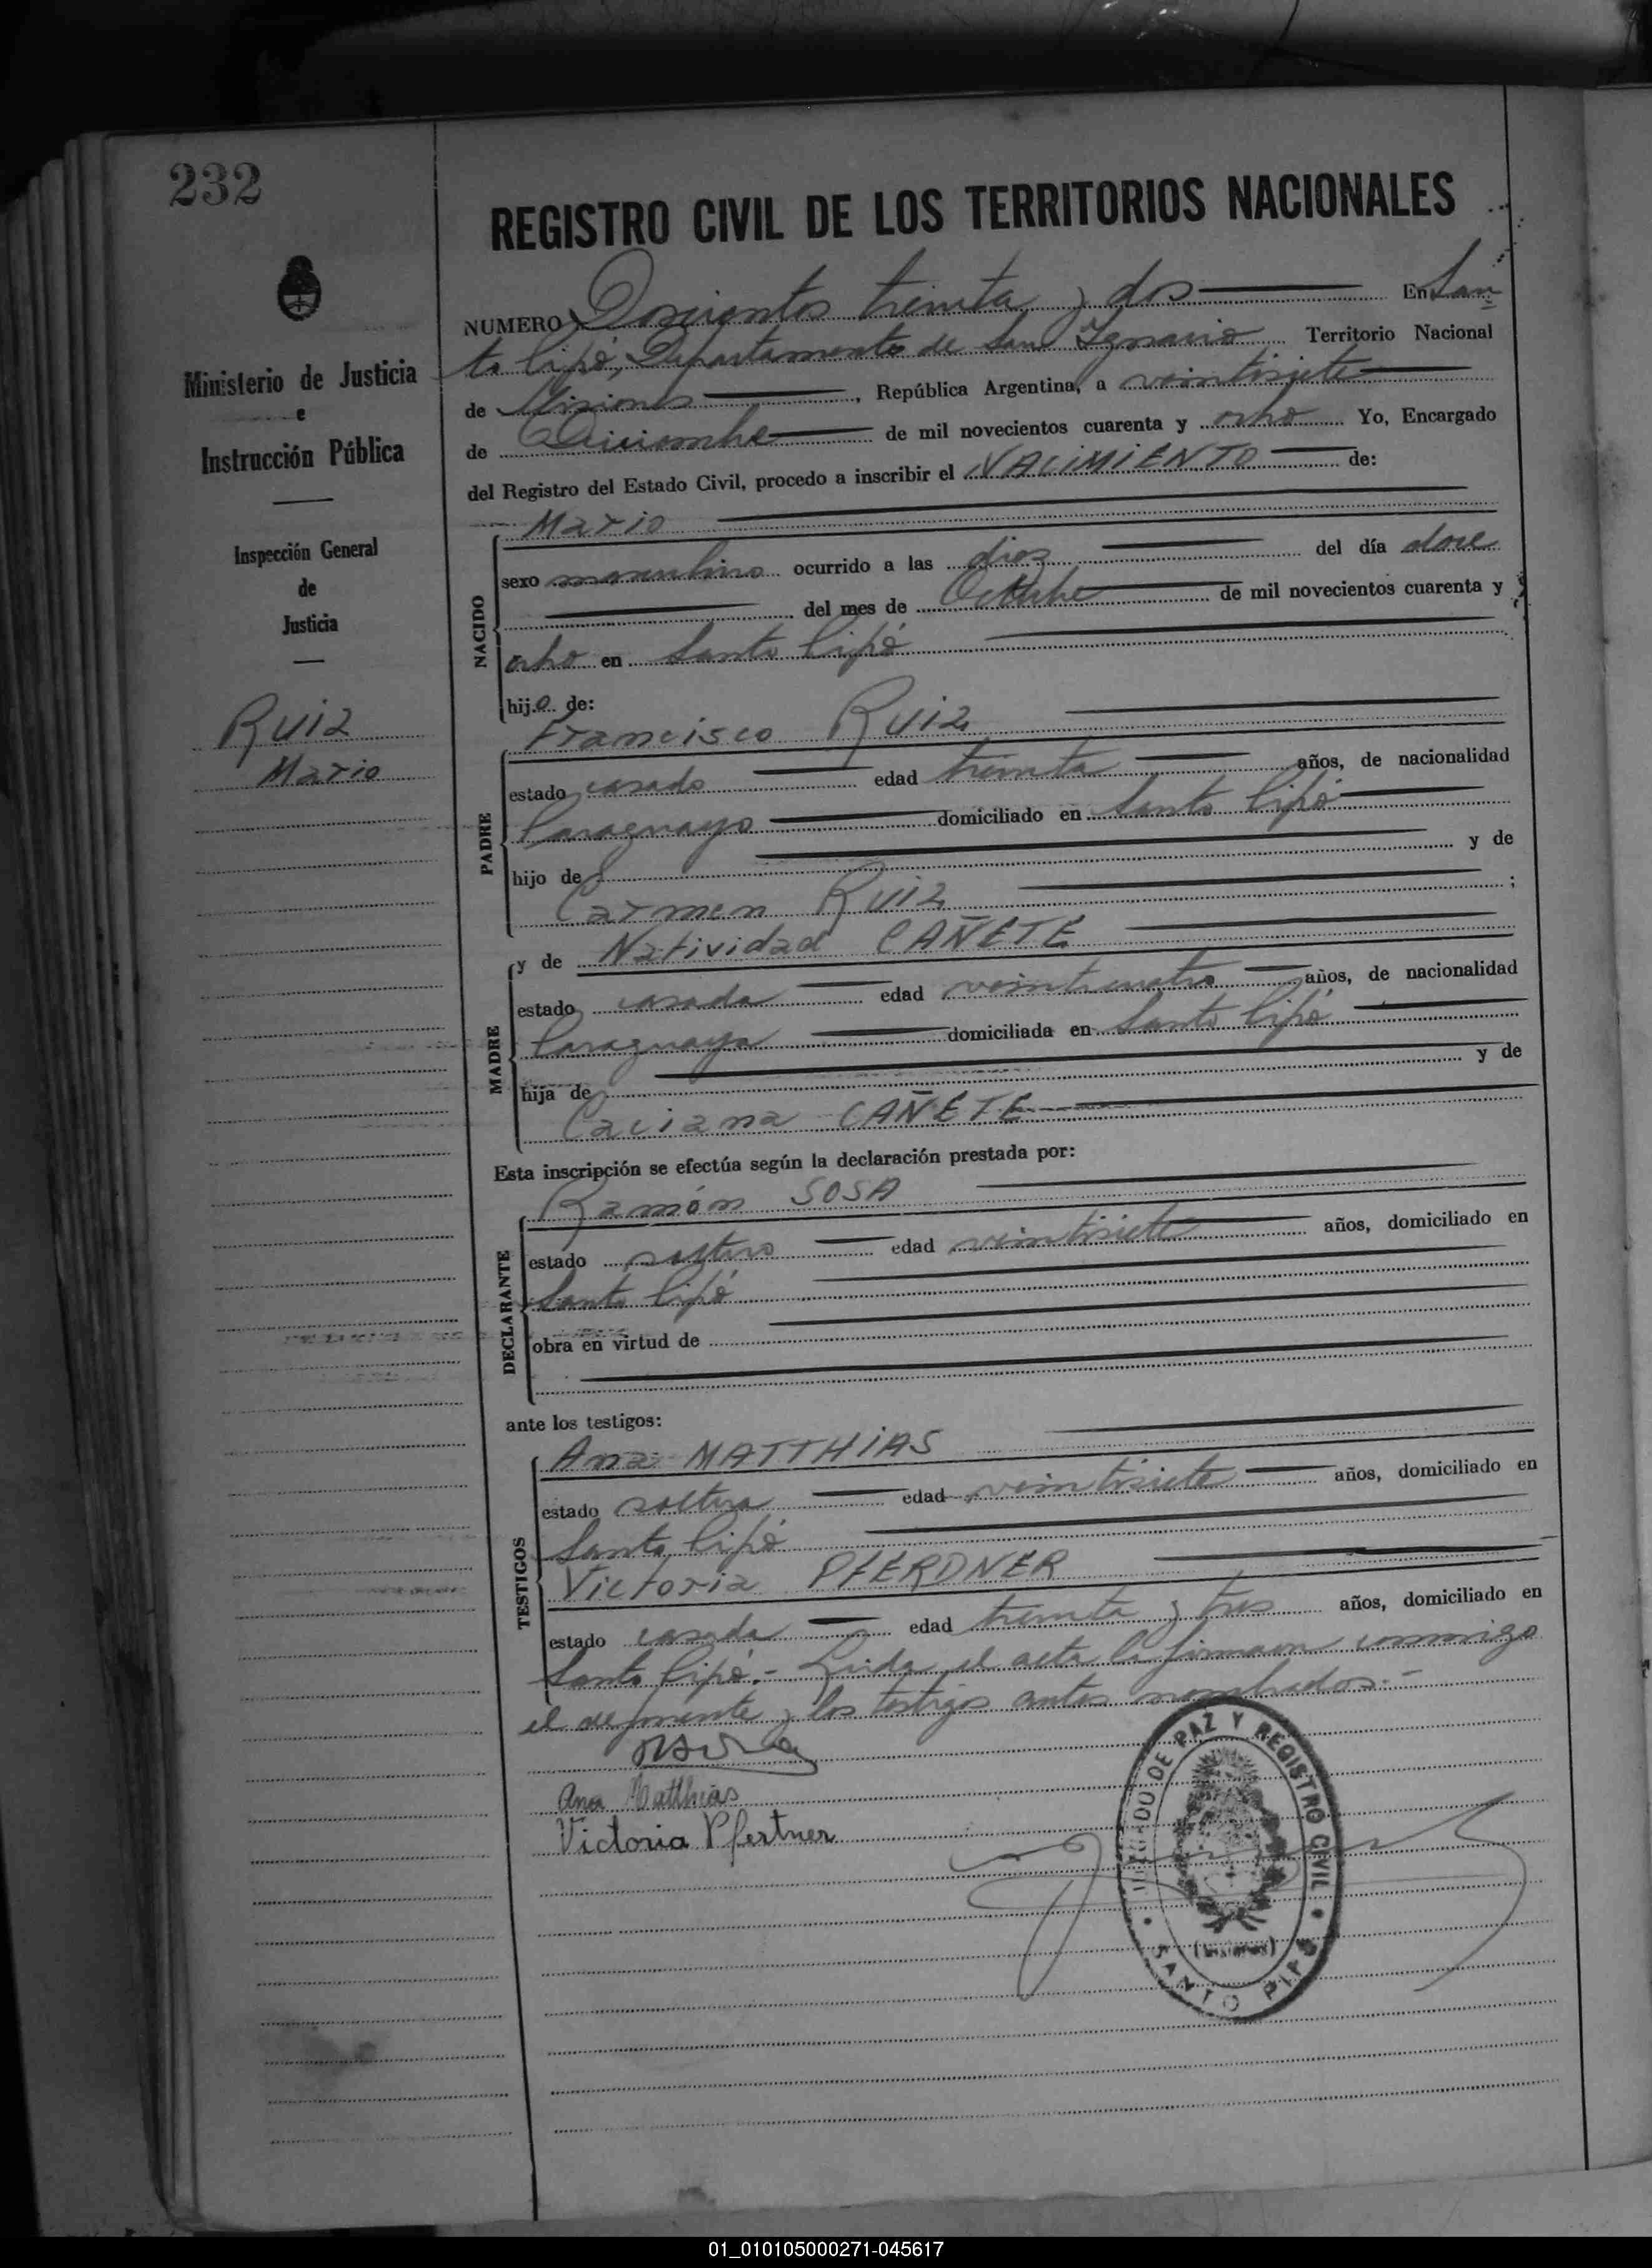 232
Ministerio de Justicia
e
Instrucción Pública
Inspección General
de
Justicia
Ruiz
Mario
REGISTRO CIVIL DE LOS TERRITORIOS NACIONALES
NUMERO Doscientos treinta y dos En San
to Pipó, Departamento de San Ignacio Territorio Nacional
de Misiones, República Argentina, a veintisiete
de Diciembre de mil novecientos cuarenta y ocho Yo, Encargado
del Registro del Estado Civil, procedo a inscribir el NACIMIENTO de:
NACIDO
Mario
sexo masculino ocurrido a las diez del día doce
del mes de Octubre de mil novecientos cuarenta y
ocho en Santo Pipó
hijo de:
PADRE
Francisco Ruiz
estado casado edad treinta años, de nacionalidad
Paraguayo domiciliado en Santo Pipó
hijo de y de
Carmen Ruiz ;
MADRE
y de Natividad CAÑETE
estado casada edad veinticuatro años, de nacionalidad
Paraguaya domiciliada en Santo Pipó
hija de y de
Caciana CAÑETE
Esta inscripción se efectúa según la declaración prestada por:
DECLARANTE
Ramón SOSA
estado soltero edad veintisiete años, domiciliado en
Santo Pipó
obra en virtud de
ante los testigos:
TESTIGOS
Ana MATTHIAS
estado soltera edad veintisiete años, domiciliado en
Santo Pipó
Victoria PFERDNER
estado casada edad treinta y tres años, domiciliado en
Santo Pipó.- Leida el acta la firman conmigo
el deponente y los testigos antes nombrados.-
Ana Matthias
Victoria Pfertner
JUZGADO DE PAZ Y REGISTRO CIVIL
(Misiones)
SANTO PIPO
01_010105000271-045617